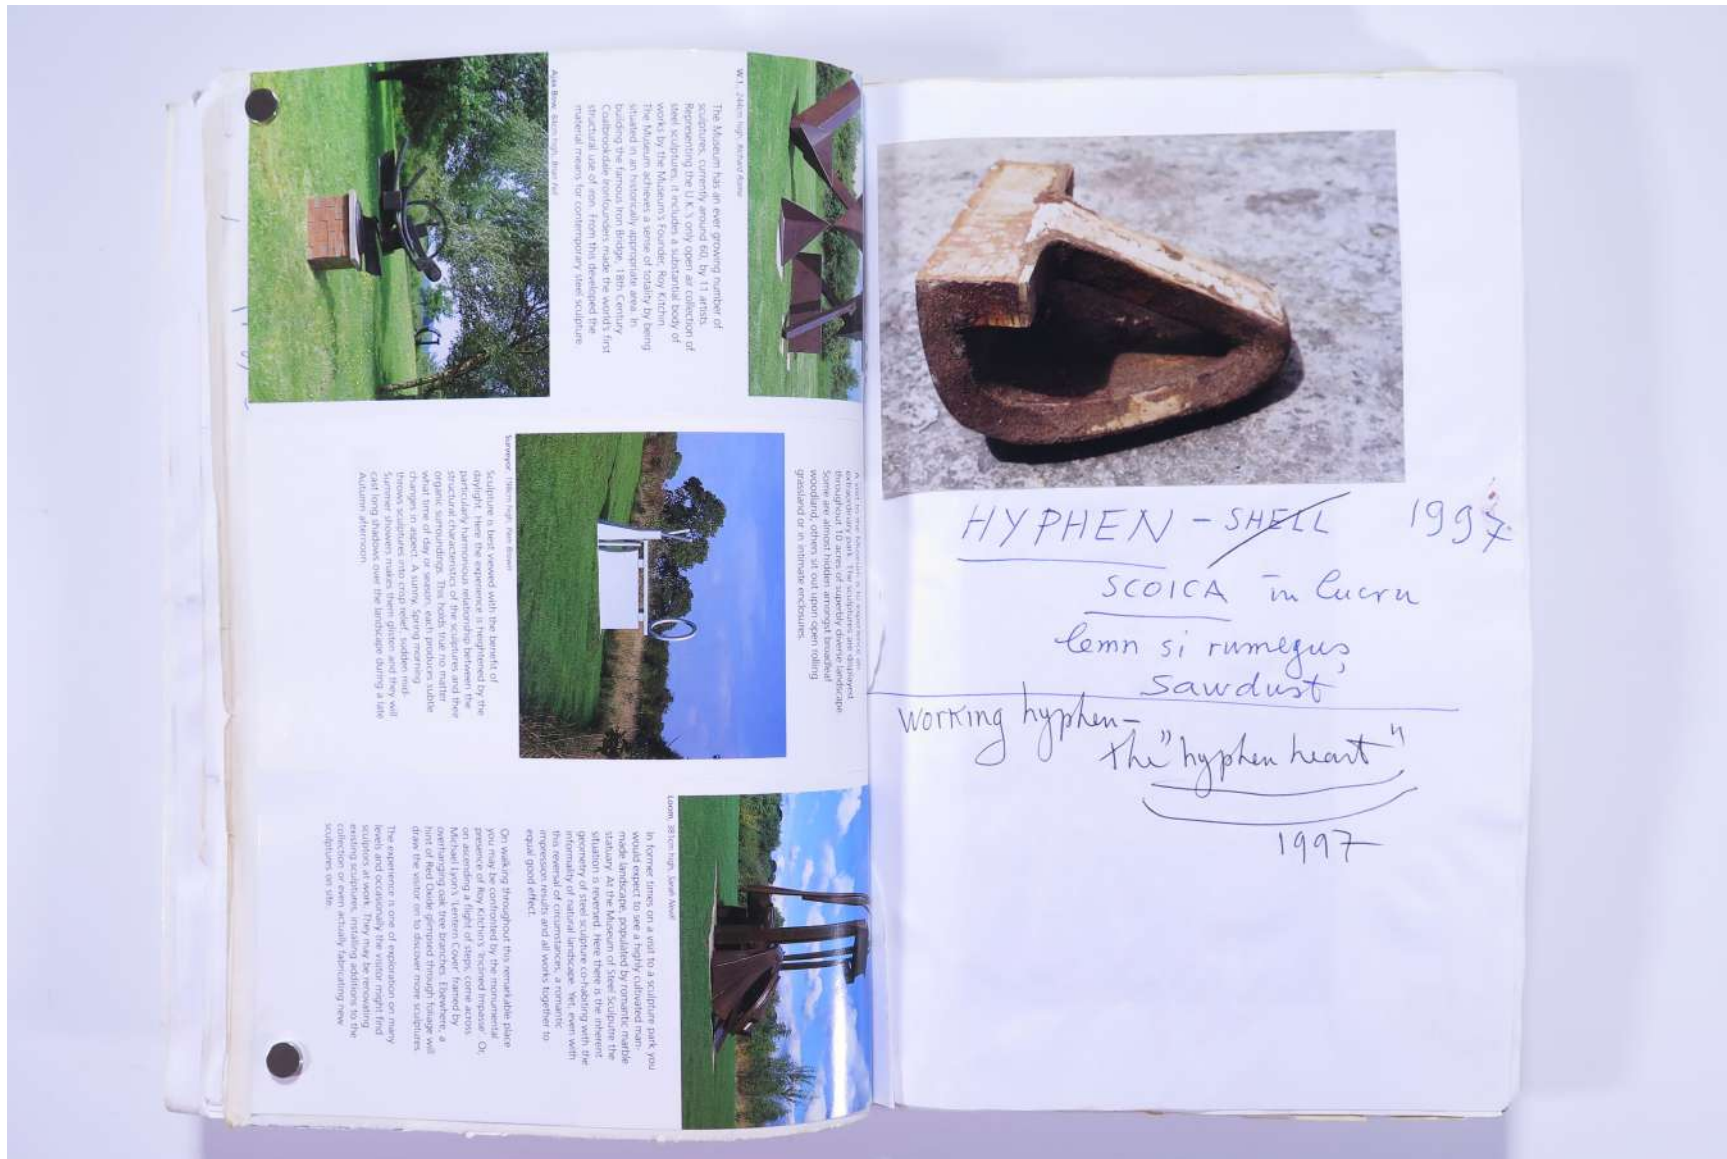 W.1., 244cm high, Richard Rome
The Museum has an ever growing number of
sculptures, currently around 60, by 11 artists.
Representing the U.K.'s only open air collection of
steel sculptures, it includes a substantial body of
works by the Museum's Founder, Roy Kitchin.
The Museum achieves a sense of totality by being
situated in an historically appropriate area. In
building the famous Iron Bridge, 18th Century
Coalbrookdale Ironfounders made the world's first
structural use of iron. From this developed the
material means for contemporary steel sculpture.
Ajax Bow, 84cm high, Brian Fell
A visit to the Museum is to experience an
extraordinary park. The sculptures are displayed
throughout 10 acres of superbly diverse landscape.
Some are almost hidden amongst broadleaf
woodland, others sit out upon open rolling
grassland or in intimate enclosures.
Surveyor, 198cm high, Pam Brown
Sculpture is best viewed with the benefit of
daylight. Here the experience is heightened by the
particularly harmonious relationship between the
structural characteristics of the sculptures and their
organic surroundings. This holds true no matter
what time of day or season, each produces subtle
changes in aspect. A sunny, Spring morning
throws sculptures into crisp relief, sudden mid-
Summer showers makes them glisten and they will
cast long shadows over the landscape during a late
Autumn afternoon.
Loom, 381cm high, Sarah
In former times on a visit to a sculpture park you
would expect to see a highly cultivated man-
made landscape, populated by romantic marble
statuary. At the Museum of Steel Sculpture the
situation is reversed. Here there is the inherent
geometry of steel sculpture co-habiting with the
informality of natural landscape. Yet, even with
this reversal of circumstances, a romantic
impression results and all works together to
equal good effect.
On walking throughout this remarkable place
you may be confronted by the monumental
presence of Roy Kitchin's 'Inclined Impasse'. Or,
on ascending a flight of steps, come across
Michael Lyon's 'Lentern Cover' framed by
overhanging oak tree branches. Elsewhere, a
hint of Red Oxide glimpsed through foliage will
draw the visitor on to discover more sculptures.
The experience is one of exploration on many
levels and occasionally the visitor might find
sculptors at work. They may be renovating
existing sculptures, installing additions to the
collection or even actually fabricating new
sculptures on site.
HYPHEN - SHELL 1997.
SCOICA in lucru
lemn si rumeguș
sawdust
working hyphen-
the "hyphen heart"
1997